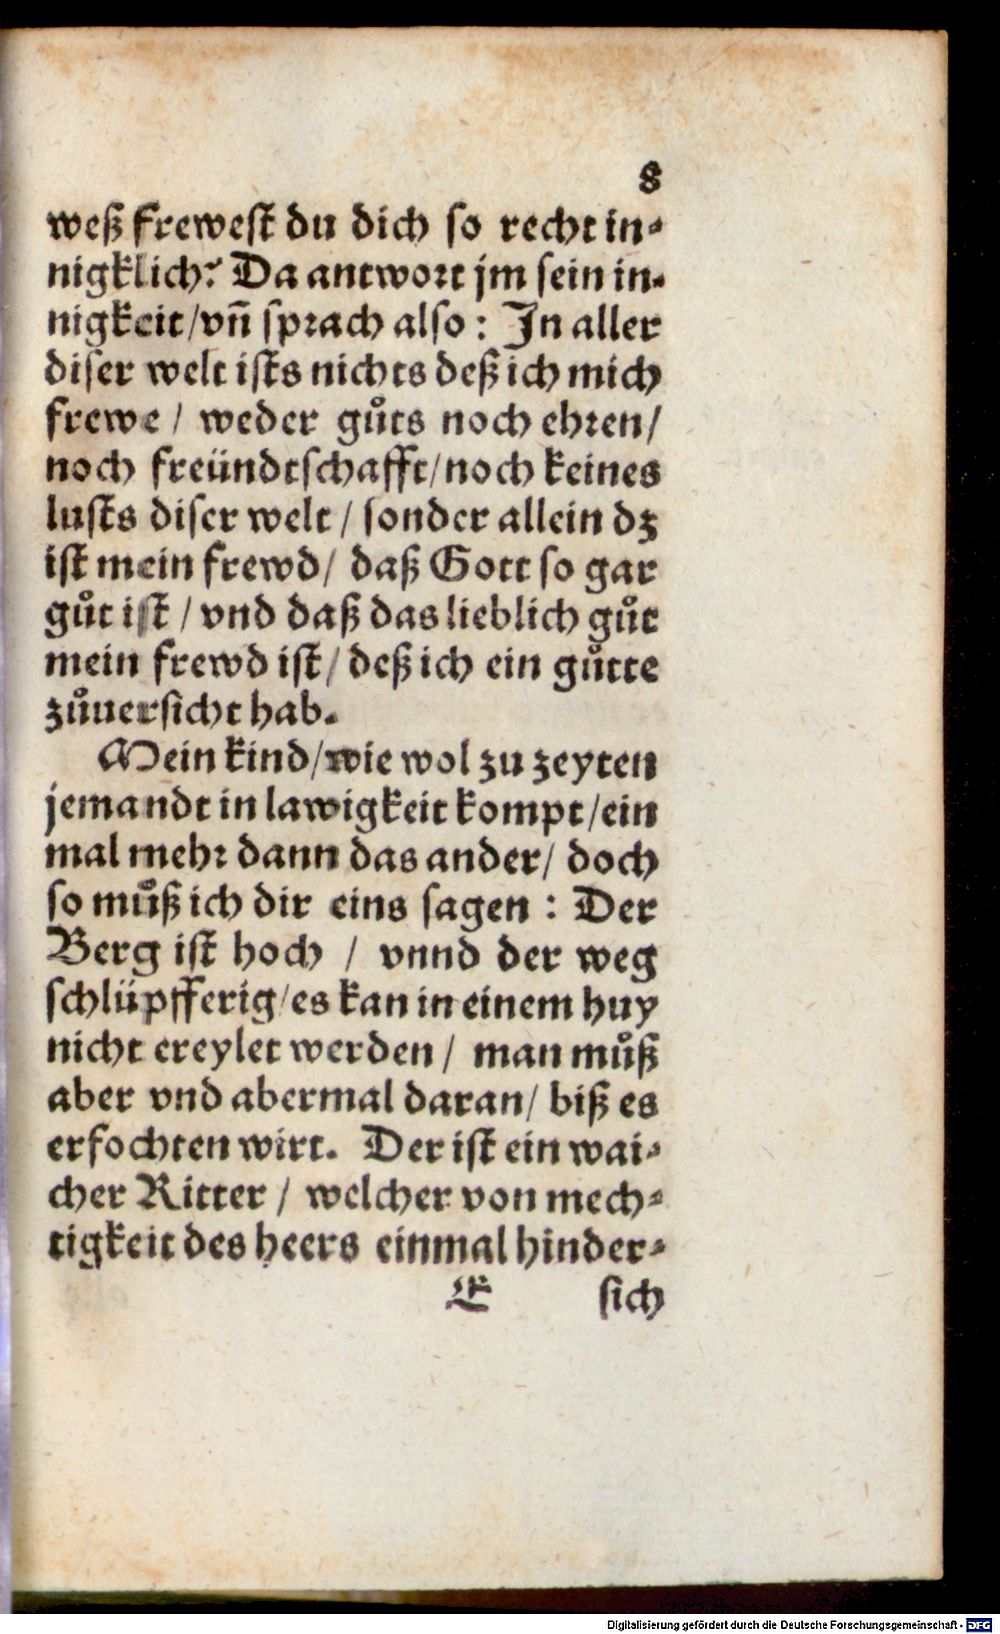 8
weß frewest du dich so recht in⸗
nigklich? Da antwort jm sein in⸗
nigkeit/vñ sprach also: In aller
diser welt ists nichts deß ich mich
frewe / weder gůts noch ehren/
noch freündtschafft/noch keines
lusts diser welt / sonder allein dz
ist mein frewd/ daß Gott so gar
gůt ist / vnd daß das lieblich gůt
mein frewd ist/ deß ich ein gůtte
zůuersicht hab.
Mein kind/wie wol zu zeyten
jemandt in lawigkeit kompt/ein
mal mehr dann das ander/ doch
so můß ich dir eins sagen : Der
Berg ist hoch / vnnd der weg
schlüpfferig/es kan in einem huy
nicht ereylet werden/ man můß
aber vnd abermal daran/ biß es
erfochten wirt. Der ist ein wai⸗
cher Ritter / welcher von mech⸗
tigkeit des heers einmal hinder⸗
E sich
Digitalisierung gefördert durch die Deutsche Forschungsgemeinschaft - DFG